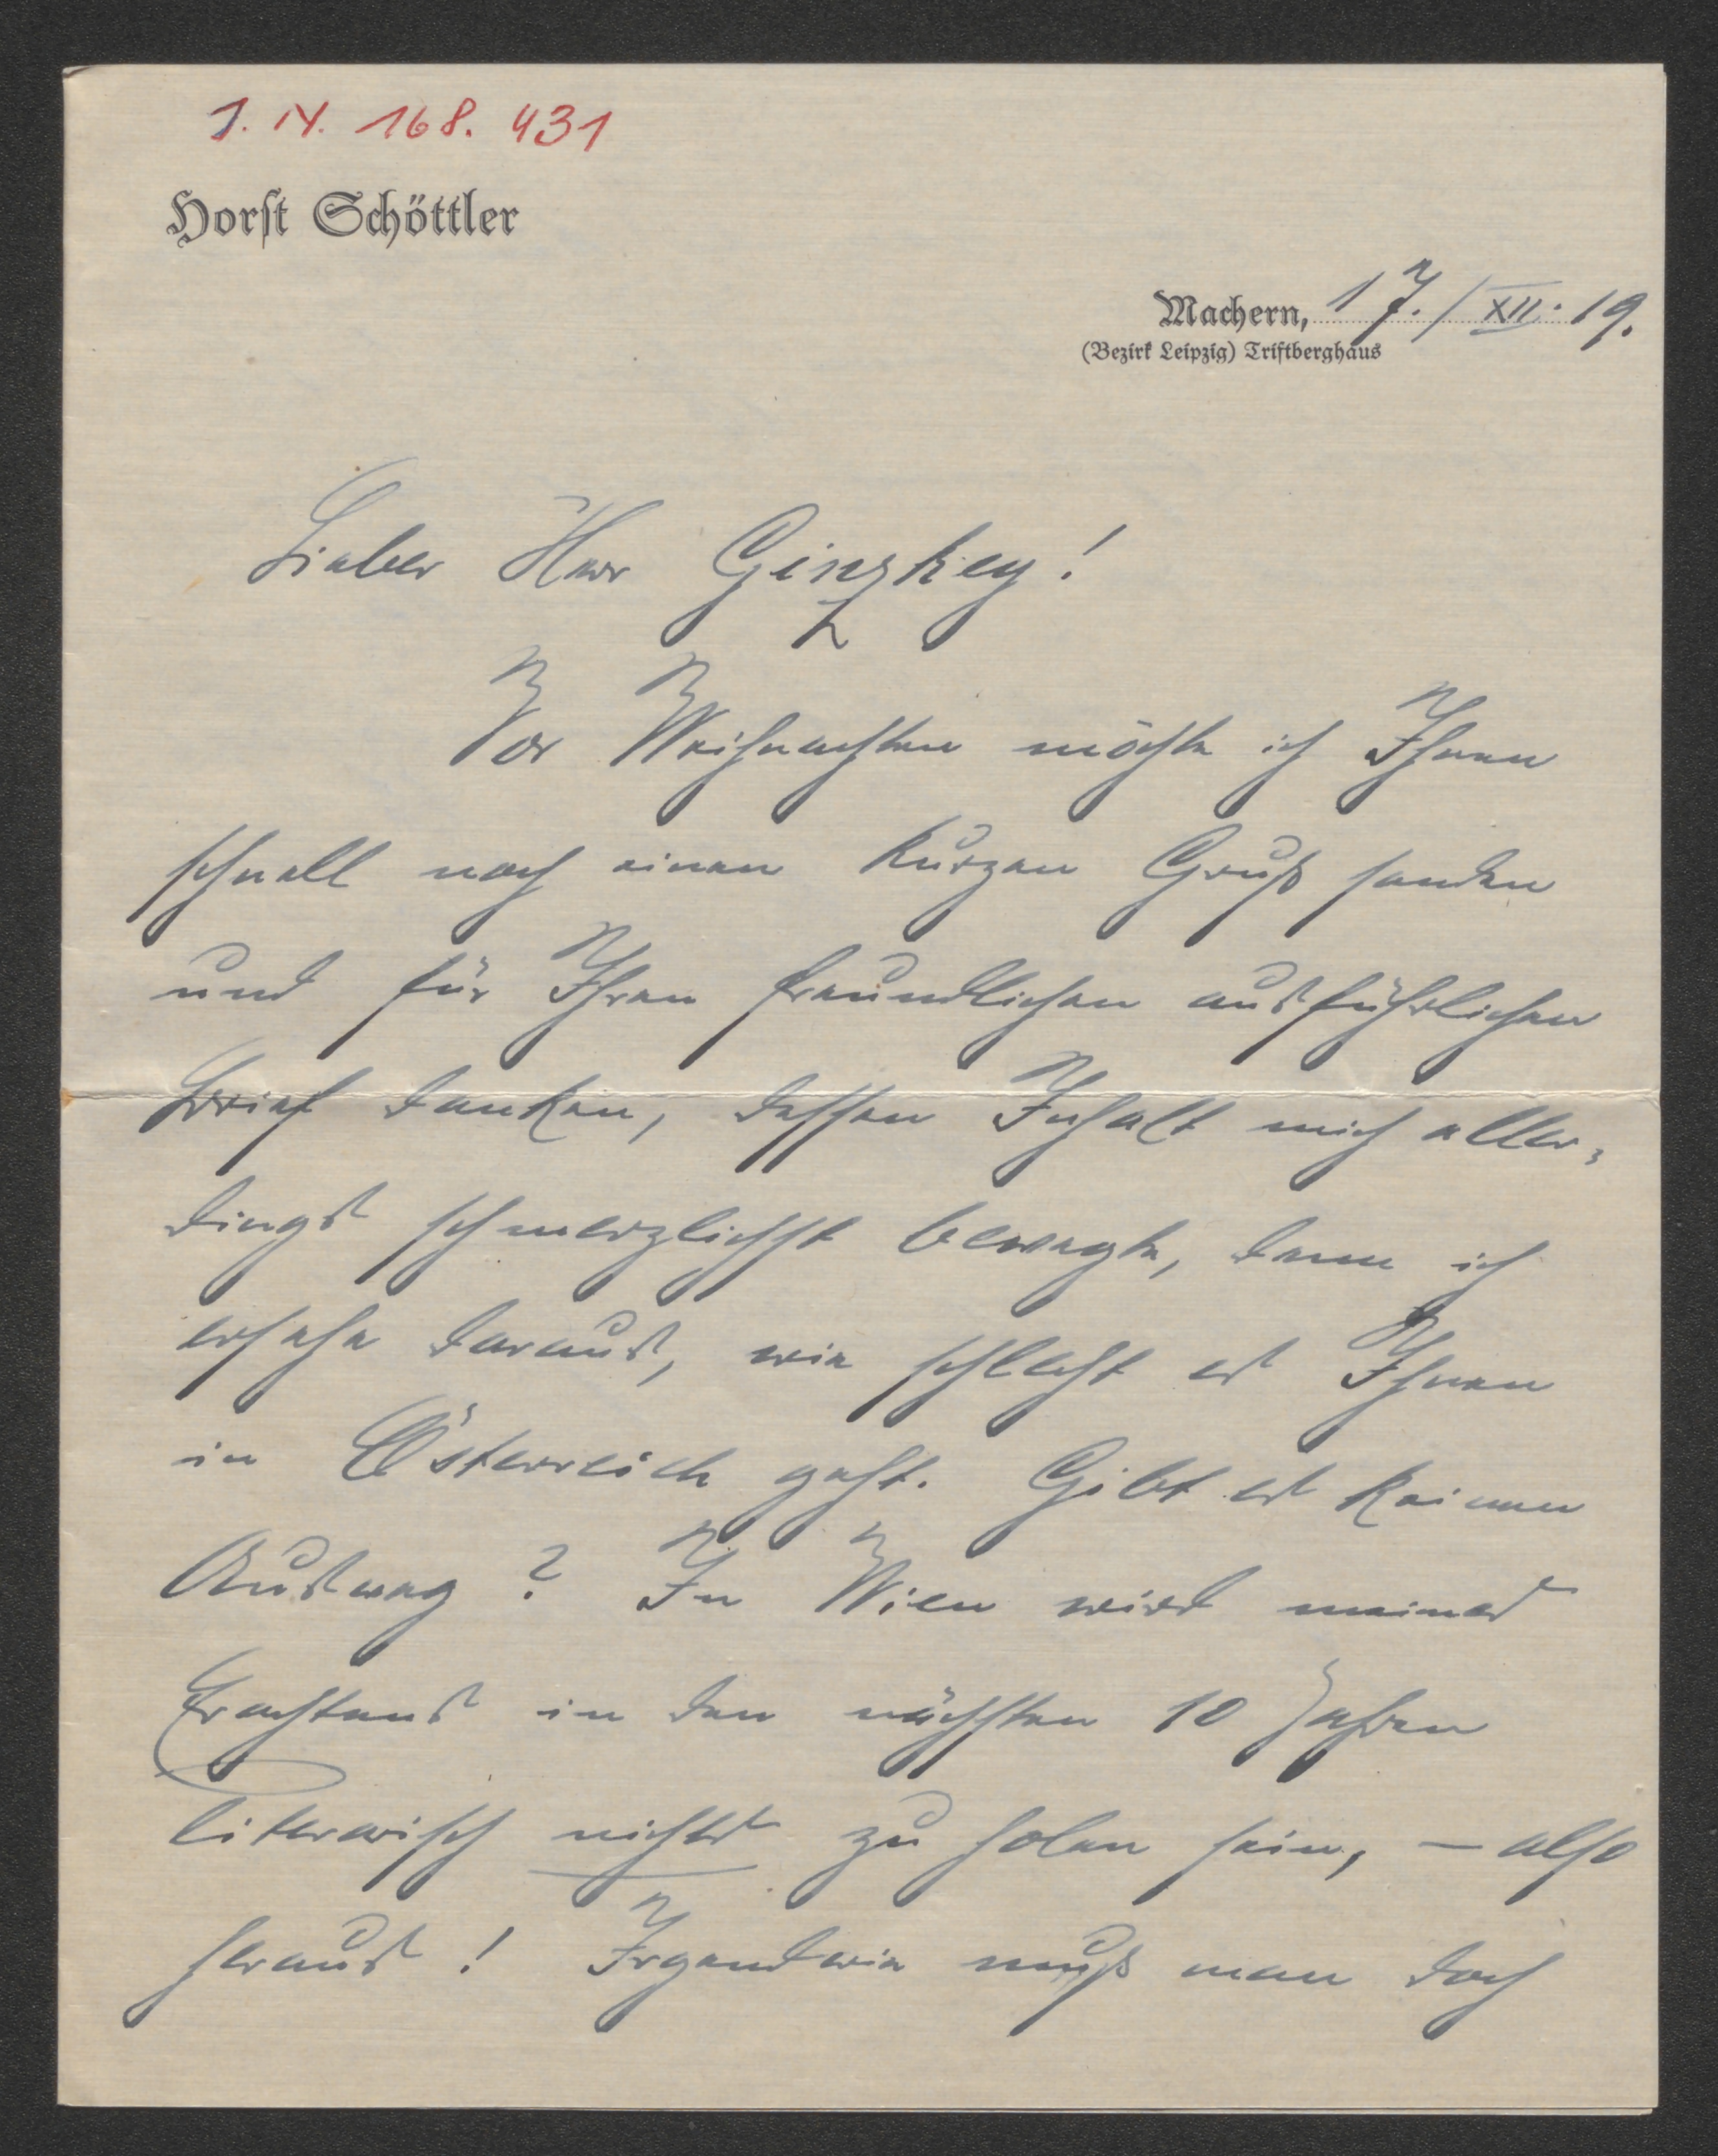 J. N. 168. 431
Horst Schöttler
Machern, 17./XII. 19.
(Bezirk Leipzig) Triftberghaus
Lieber Herr Ginzkey!
Vor Weihnachten möchte ich Ihnen
schnell noch einen kurzen Gruß senden
und für Ihren freundlichen ausführlichen
Brief danken, dessen Inhalt mich aller-
dings schmerzlichst bewegte, denn ich
ersehe daraus, wie schlecht es Ihnen
in Österreich geht. Gibt es keinen
Ausweg? In Wien wird meines
Erachtens in den nächsten 10 Jahren
literarisch nichts zu holen sein, – also
heraus! Irgendwie muß man doch